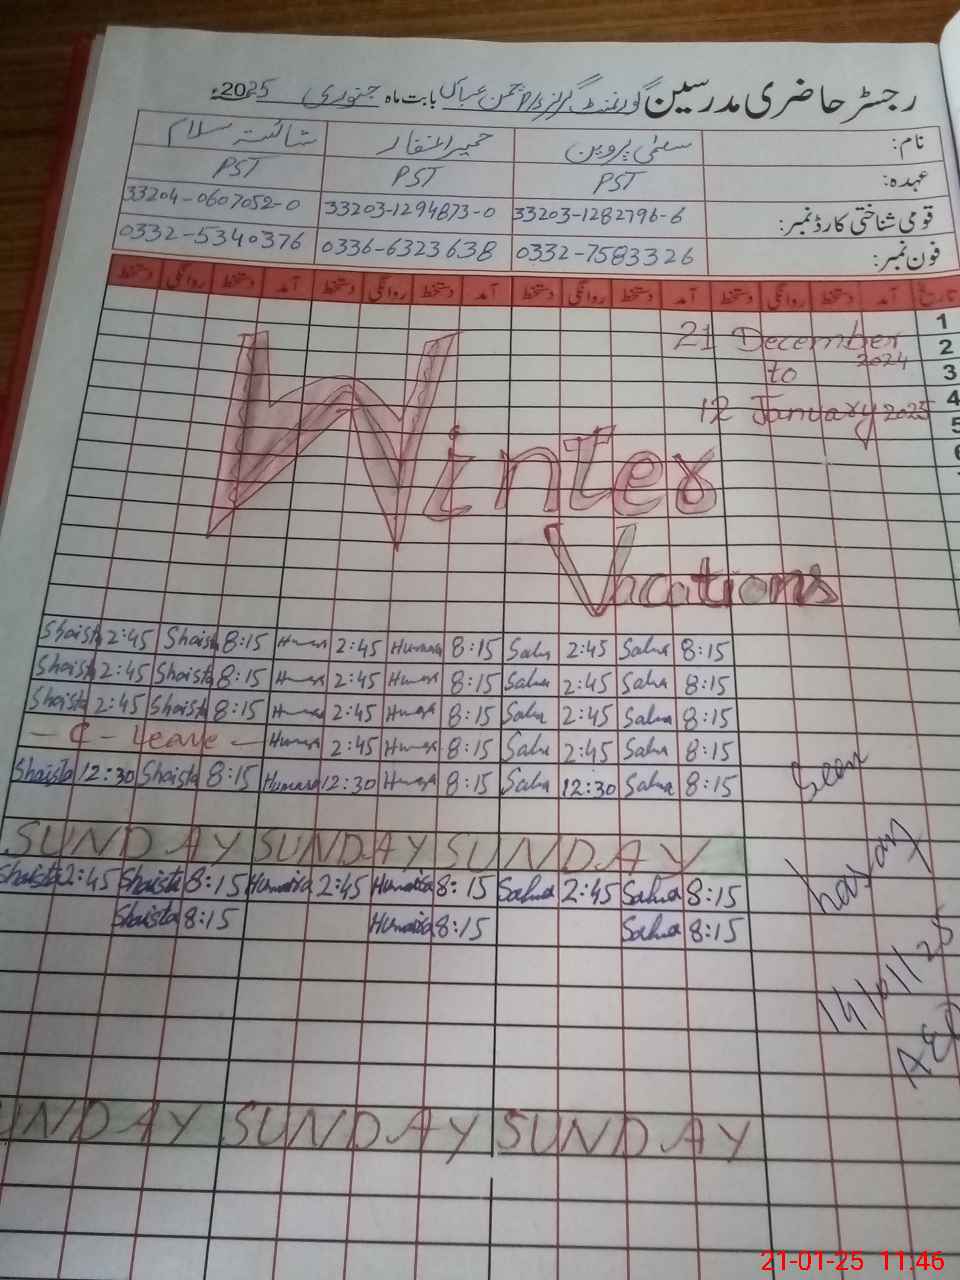 رجسٹر حاضری مدرسین گورنمنٹ گرلز بابت ماہ جنوری 2025ء
نام: سلمیٰ پروین شائستہ سلام
عہدہ: PST PST PST
قومی شناختی کارڈ نمبر: 33203-1282796-6 33203-1294873-0 33204-0607052-0
فون نمبر: 0332-7583326 0336-6323638 0332-5340376
تاریخ آمد دستخط روانگی دستخط آمد دستخط روانگی دستخط آمد دستخط روانگی دستخط آمد دستخط روانگی دستخط
1
21 December 2024
2
to
3
12 January 2025
4
5
6
Winter
Vacations
Shaista 2:45 Shaista 8:15 Humaira 2:45 Humaira 8:15 Salma 2:45 Salma 8:15
Shaista 2:45 Shaista 8:15 Humaira 2:45 Humaira 8:15 Salma 2:45 Salma 8:15
Shaista 2:45 Shaista 8:15 Humaira 2:45 Humaira 8:15 Salma 2:45 Salma 8:15
- C - Leave - Humaira 2:45 Humaira 8:15 Salma 2:45 Salma 8:15
Shaista 12:30 Shaista 8:15 Humaira 12:30 Humaira 8:15 Salma 12:30 Salma 8:15
SUNDAY SUNDAY SUNDAY
Shaista 2:45 Shaista 8:15 Humaira 2:45 Humaira 8:15 Salma 2:45 Salma 8:15
Shaista 8:15 Humaira 8:15 Salma 8:15
Seen
AEO
UNDAY SUNDAY SUNDAY
21-01-25 11.46